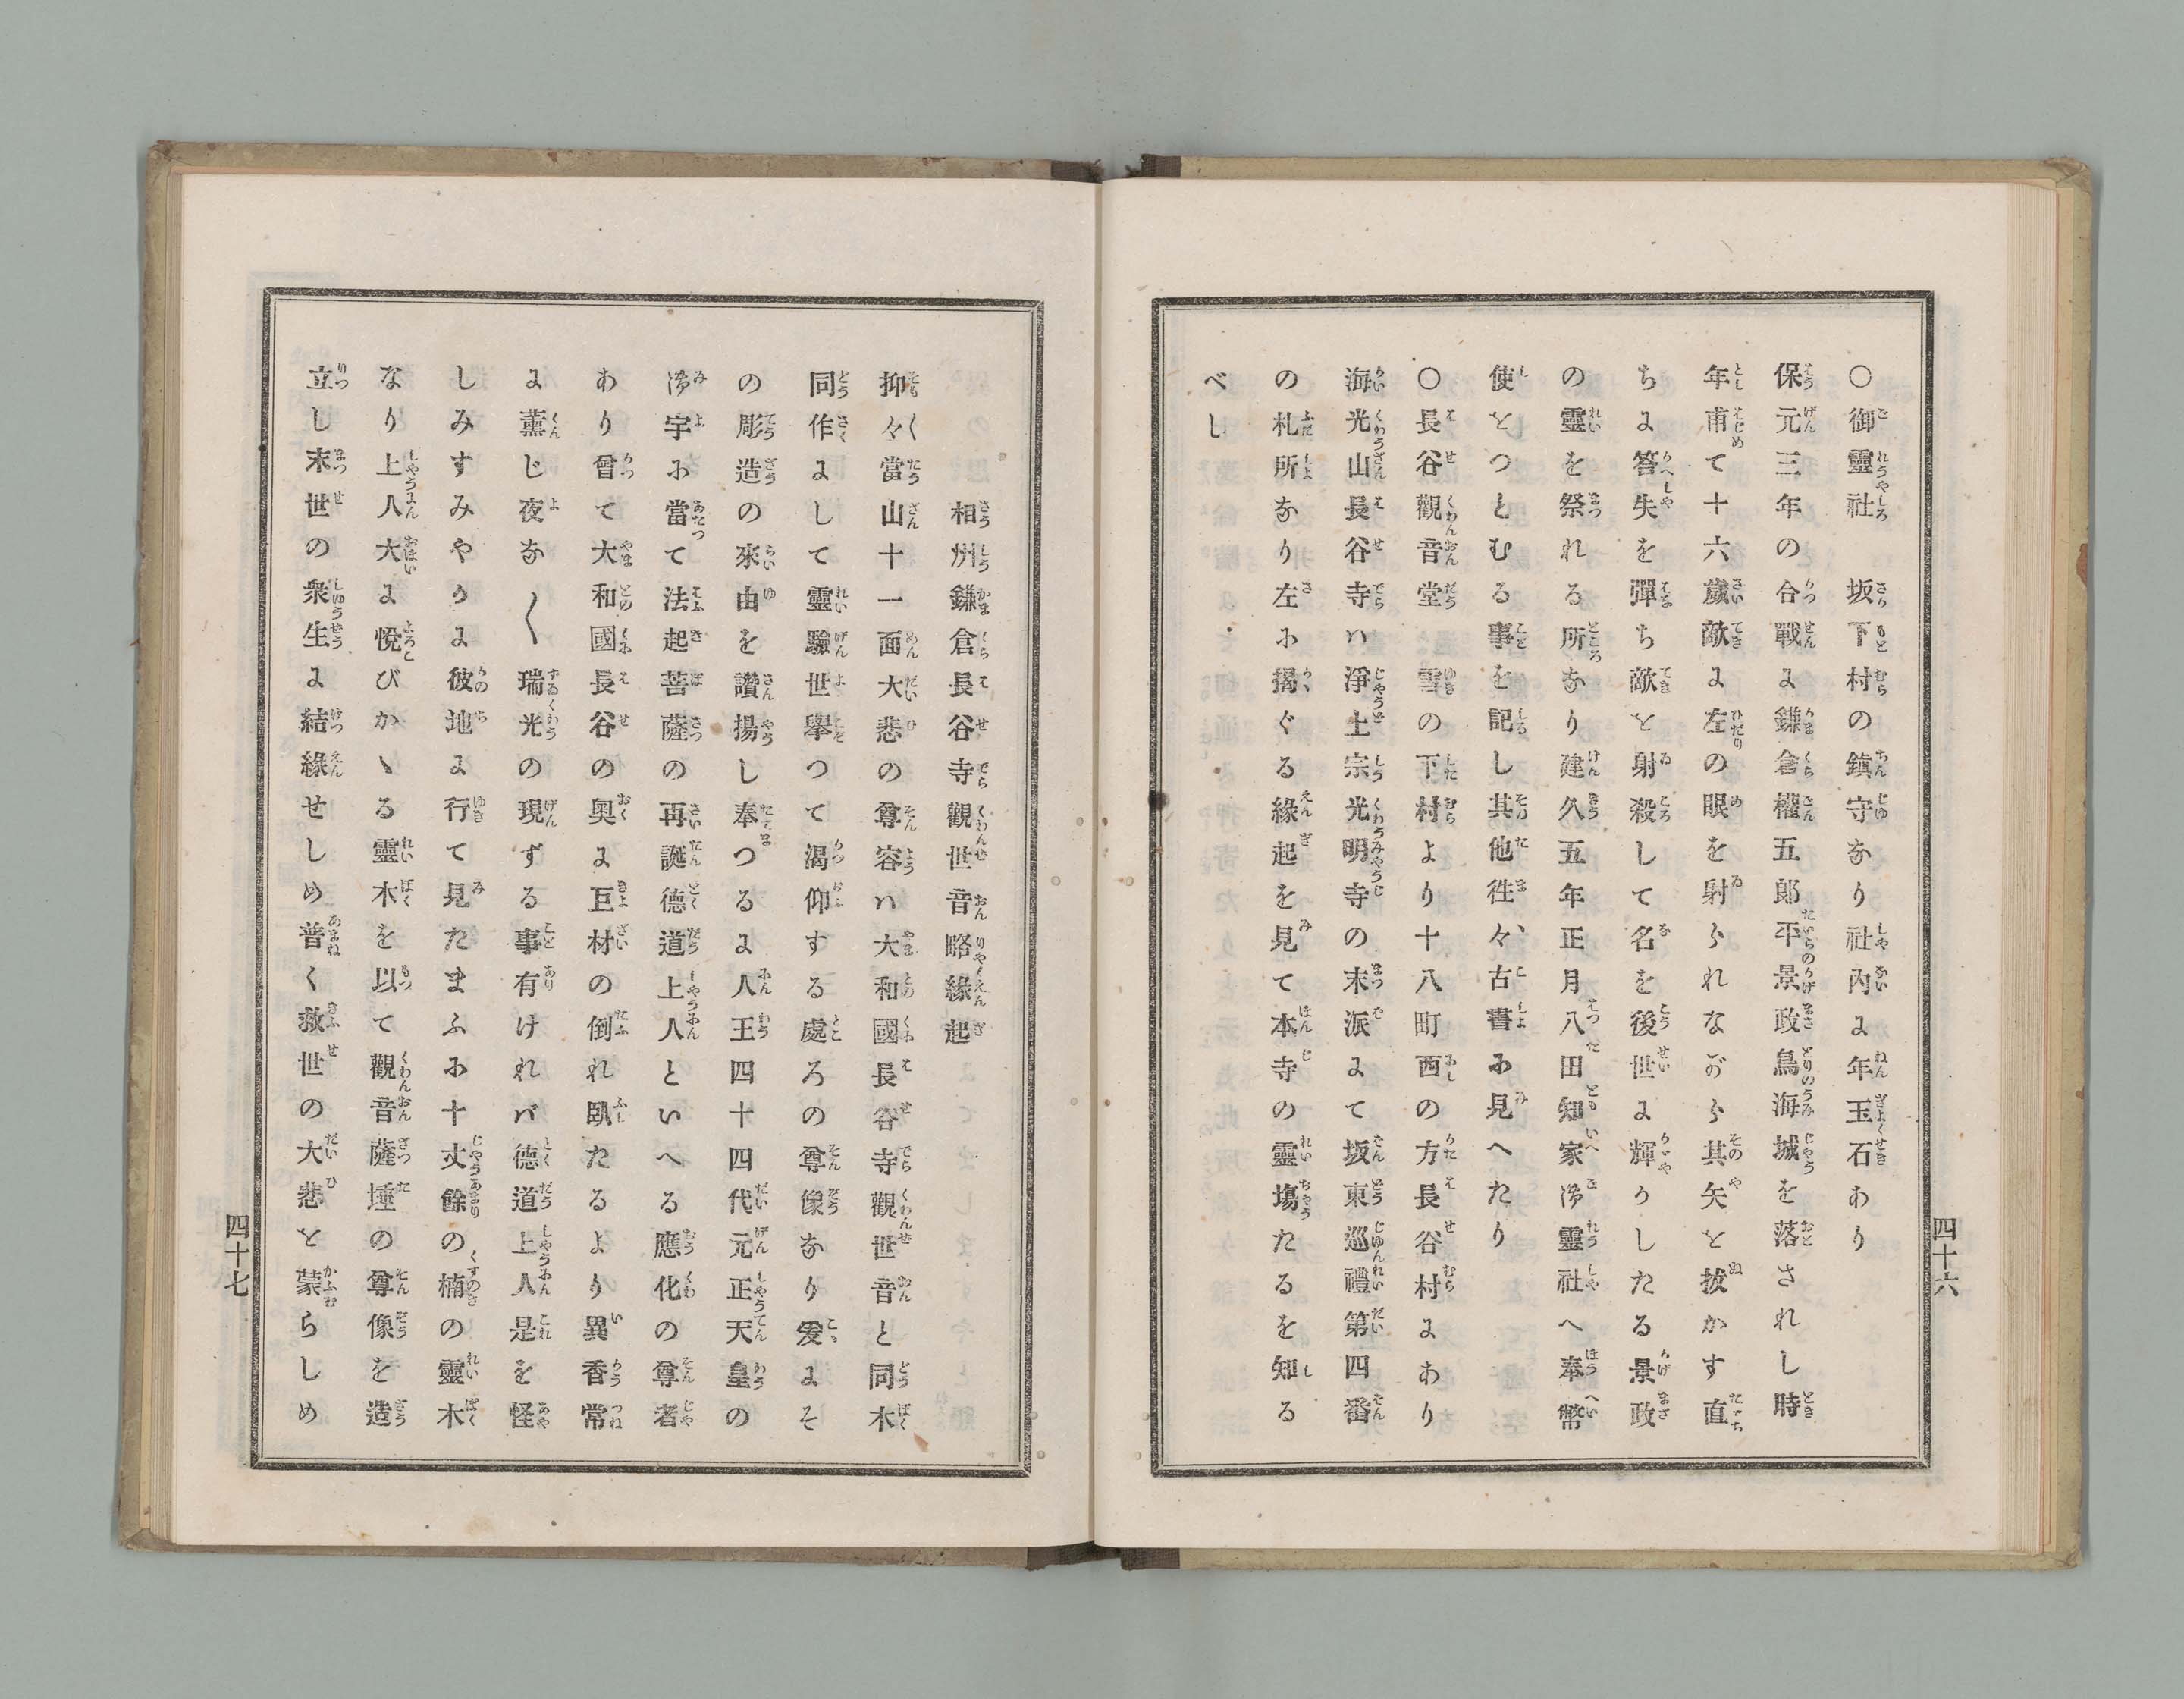 〇御靈社 坂下村の鎮守なり社內に年玉石あり
保元三年の合戰に鎌倉權五郎平景政鳥海城を落されし時
年甫て十六歲敵に左の眼を射られながら其矢を拔かす直
ちに答失を彈ち敵を射殺して名を後世に輝かしたる景政
の靈を祭れる所なり建久五年正月八田知家御靈社へ奉幣
使をつとむる事を記し其他徃々古書に見へたり
〇長谷觀音堂 雪の下村より十八町西の方長谷村にあり
海光山長谷寺ハ淨土宗光明寺の末派にて坂東巡禮第四番
の札所なり左に揭ぐる緣起を見て本寺の靈塲たるを知る
べし
四十六
相州鎌倉長谷寺觀世音略緣起
抑々當山十一面大悲の尊容ハ大和國長谷寺觀世音と同木
同作にして靈驗世擧つて渴仰する處ろの尊像なり爰にそ
の彫造の來由を讚揚し奉つるに人王四十四代元正天皇の
御宇に當て法起菩薩の再誕德道上人といへる應化の尊者
あり曾て大和國長谷の奧に巨材の倒れ臥たるより異香常
に薰じ夜な〱瑞光の現ずる事有けれバ德道上人是を怪
しみすみやかに彼地に行て見たまふに十丈餘の楠の靈木
なり上人大に悅びかゝる靈木を以て觀音薩埵の尊像を造
立し末世の衆生に結緣せしめ普く救世の大悲を蒙らしめ
四十七